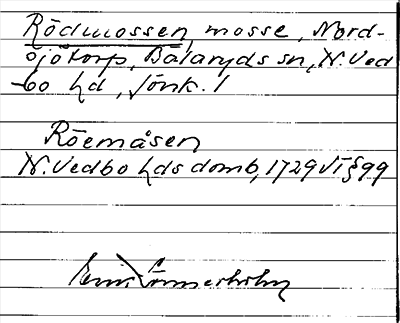 Rödmossen, mosse, Nord-
sjötorp, Bälaryds sn, N. Ved
-bo hd, Jönk. l
Röemåsen
N. Vedbo hds domb, 1729 VT § 99